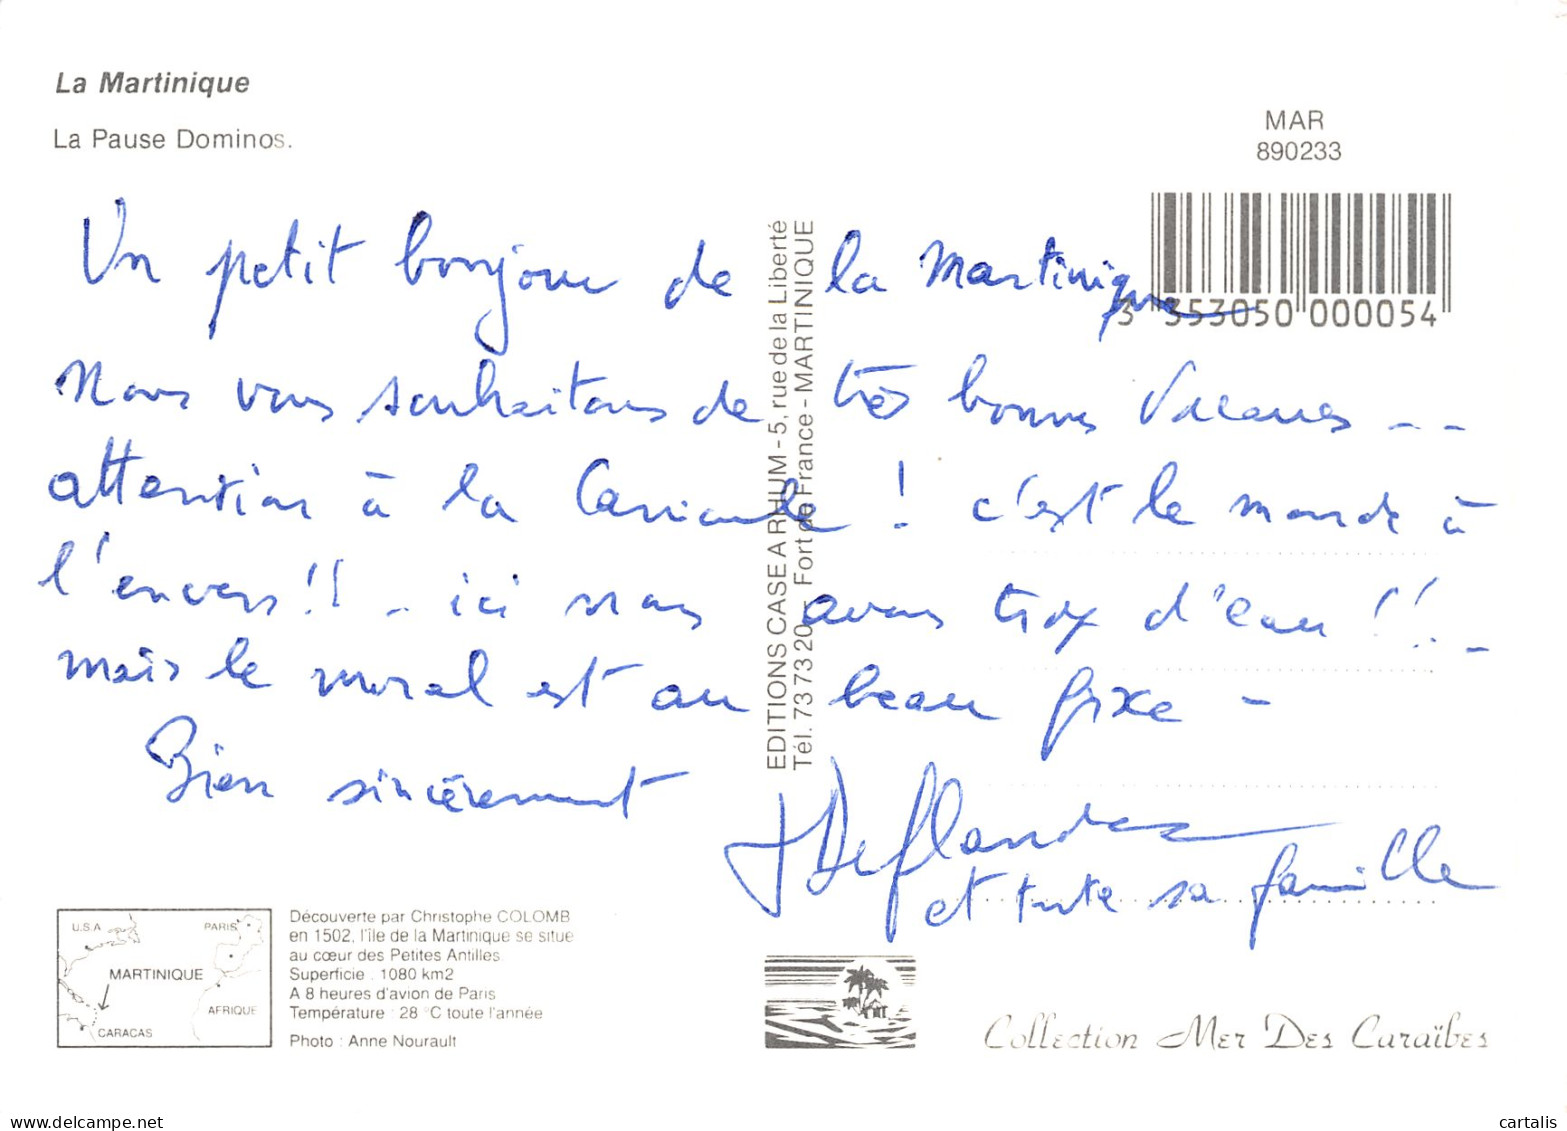 La Martinique
La Pause Dominos.
MAR
890233
3 353050 000054
Un petit bonjour de la Martinique
Nous vous souhaitons de très bonnes Vacances --
attention à la Canicule ! c'est le monde à
l'envers !! - ici nous avons trop d'eau !! -
mais le moral est au beau fixe -
Bien sincèrement
Deflandre
et toute sa famille
EDITIONS CASE A RHUM - 5, rue de la Liberté
Tél. 73 73 20 - Fort de France - MARTINIQUE
U.S.A
PARIS
MARTINIQUE
AFRIQUE
CARACAS
Découverte par Christophe COLOMB
en 1502, l'île de la Martinique se situe
au cœur des Petites Antilles
Superficie : 1080 km2
A 8 heures d'avion de Paris
Température : 28 °C toute l'année
Photo : Anne Nourault
Collection Mer Des Caraïbes
www.delcampe.net
cartalis